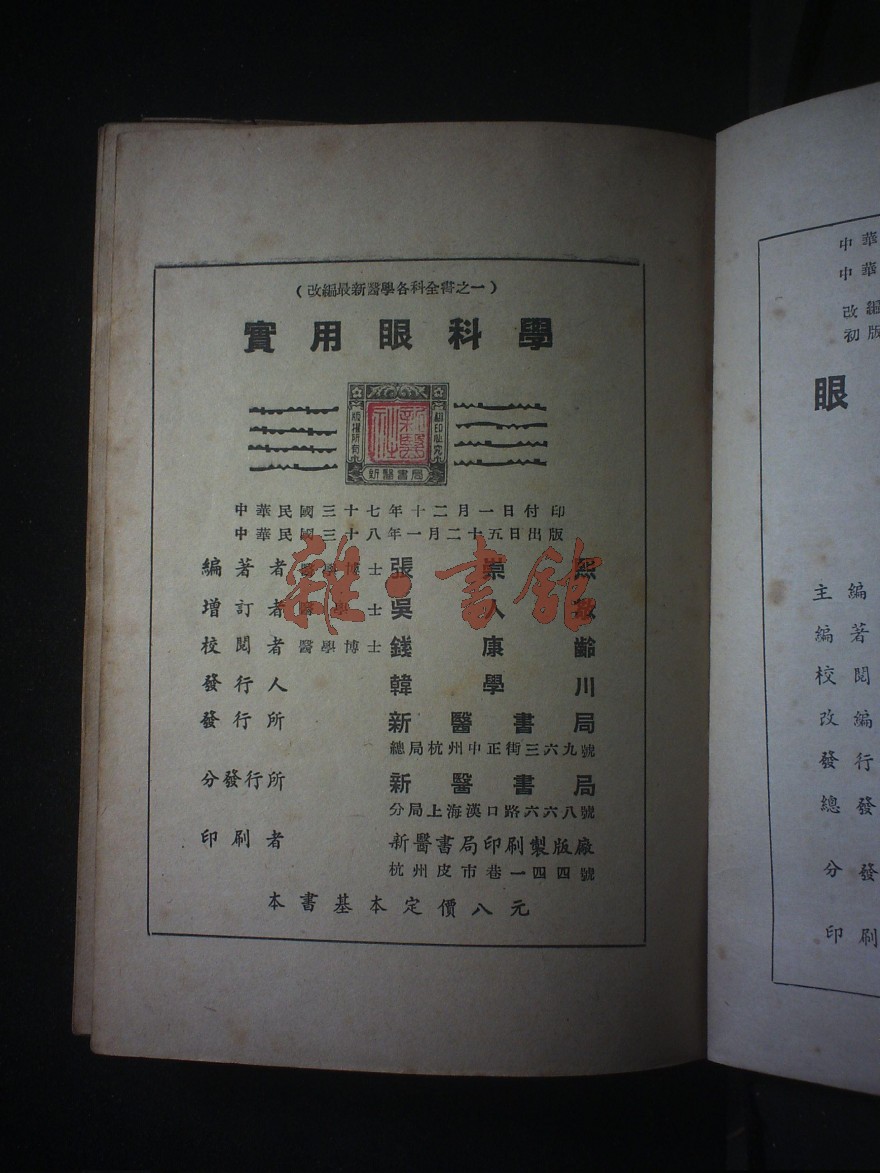 （改編最新醫學各科全書之一）
實用眼科學
版權所有
翻印必究
新醫書局
中華民國三十七年十二月一日付印
中華民國三十八年一月二十五日出版
編著者 醫學博士 張崇熙
增訂者 醫學士 吳人
校閱者 醫學博士 錢康齡
發行人 韓學川
發行所 新醫書局
總局杭州中正街三六九號
分發行所 新醫書局
分局上海漢口路六六八號
印刷者 新醫書局印刷製版廠
杭州皮市巷一四四號
本書基本定價八元
雜·書館
中華
中華
改編
初版
眼
主編
編著
校閱
改編
發行
總發
分發
印刷